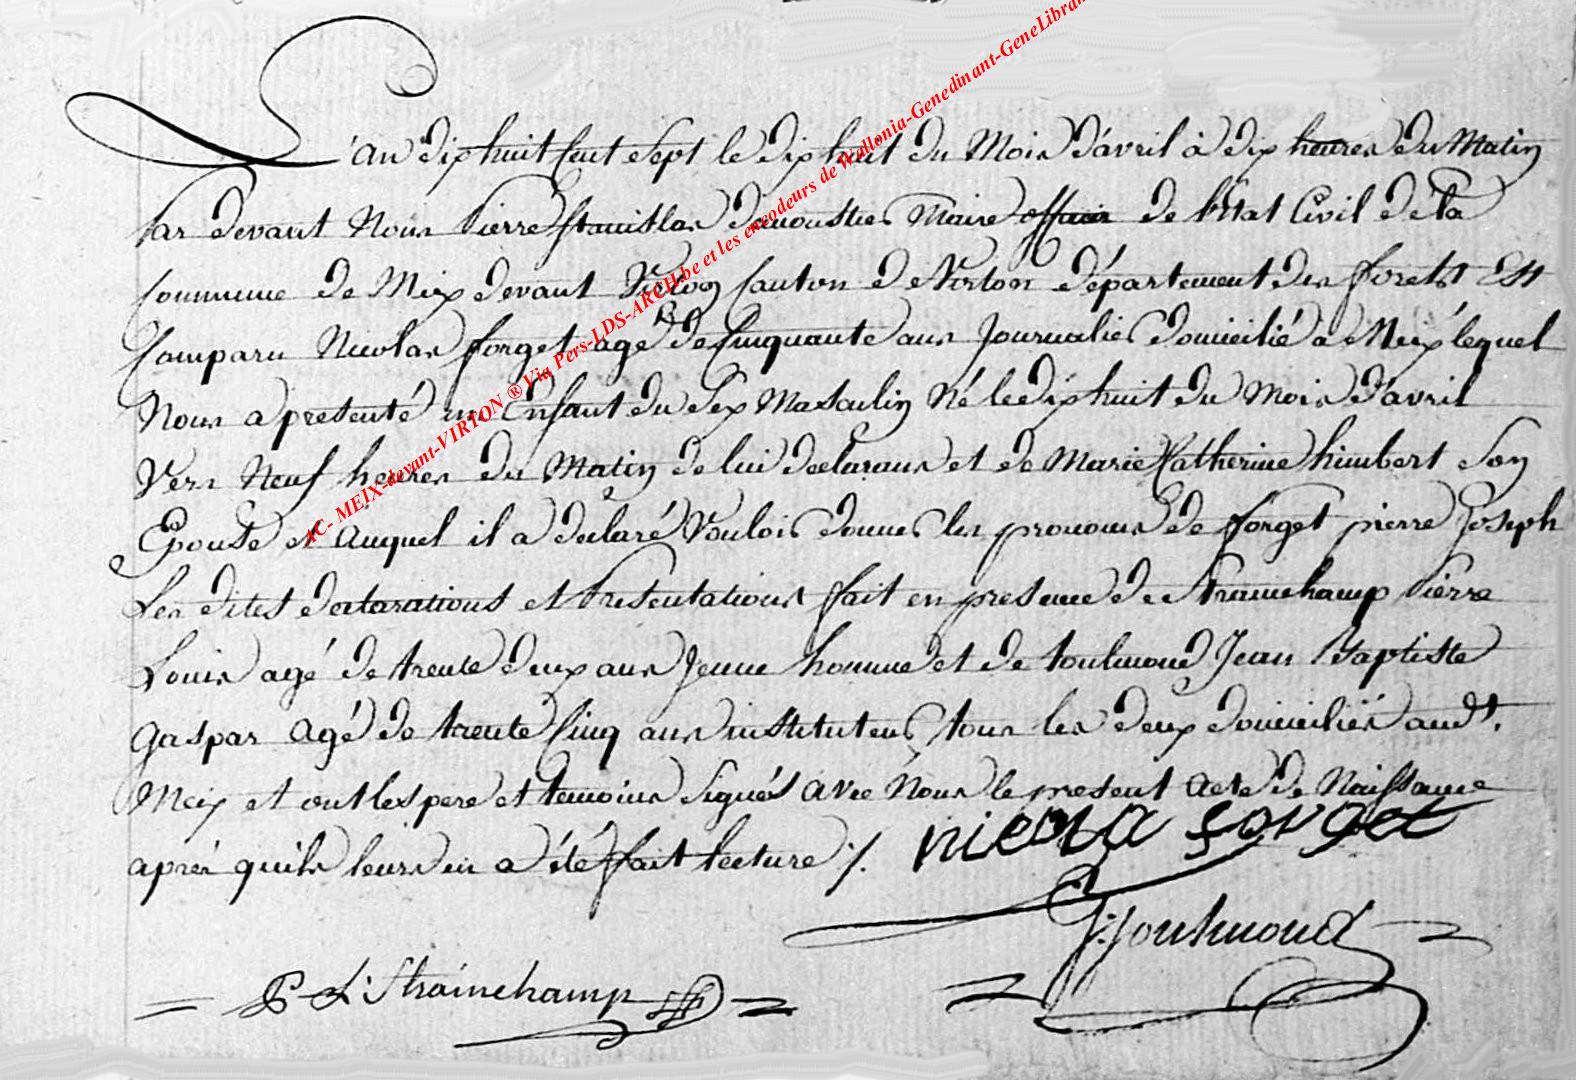 L'an dix huit cent sept le dix huit du Mois d'avril à dix heures du Matin
Par devant Nous Pierre Stanislas demoustier Maire officier de l'Etat Civil de la
Commune de Meix devant Virton Canton de Virton département des forets Est
Comparu Nicolas forget agé de Cinquante ans Journalier domicilié à Meix lequel
Nous a presenté un Enfant du Sex Masculin Né le dix huit du Mois d'avril
Vers Neuf heures du Matin de lui declarans et de Marie Catherine himbert Son
Epouse et auquel il a declaré Vouloir donner les prenoms de forget pierre Joseph
Les dites declarations et Presentations fait en presence de Strainchamp Pierre
Louis agé de trente deux ans Jeune homme et de toulmond Jean Baptiste
Gaspar agé de trente Cinq ans instituteur tous les deux domiciliés audt.
Meix et ont les pere et temoins Signés avec Nous le present acte de Naissance
aprés quils leurs en a été fait lecture ./.
nicola forget
J: Toulmond
P L: Strainchamp
AC- MEIX-devant-VIRTON ® Via Pers-LDS-ARCH.be et les encodeurs de Wallonia-Genedinant-GeneLibran